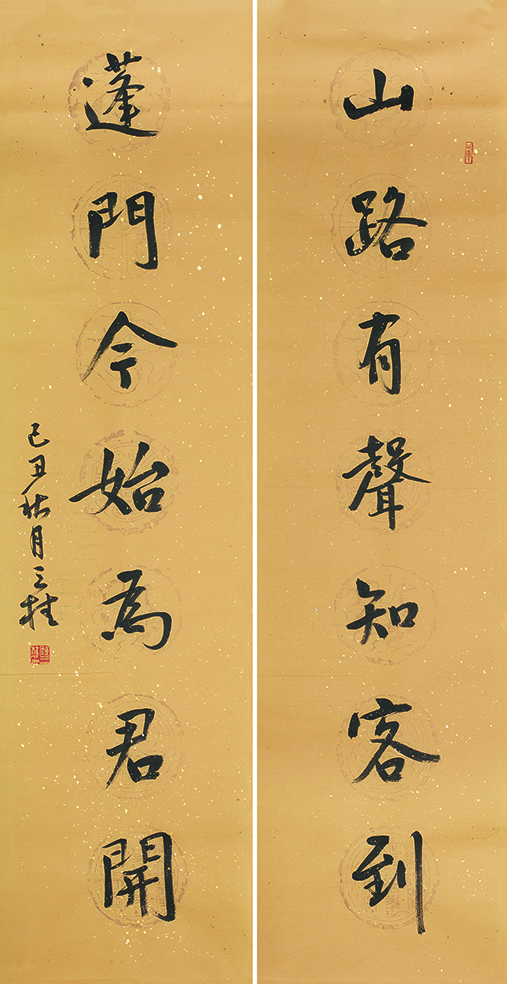 山路有聲知客到
蓬門今始為君開
己丑秋月三桂